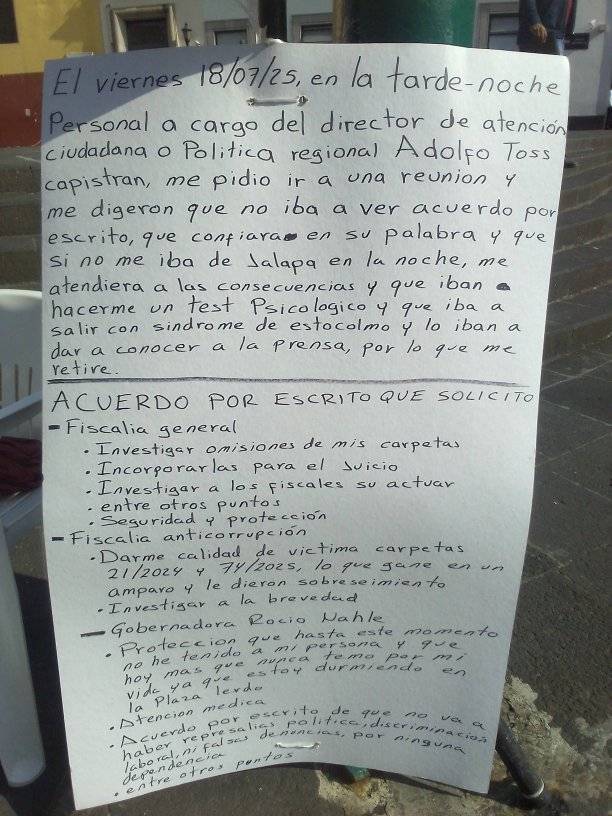 El viernes 18/07/25, en la tarde-noche
Personal a cargo del director de atención
ciudadana o Politica regional Adolfo Toss
capistran, me pidio ir a una reunion y
me digeron que no iba a ver acuerdo por
escrito, que confiara en su palabra y que
si no me iba de Jalapa en la noche, me
atendiera a las consecuencias y que iban a
hacerme un test Psicologico y que iba a
salir con sindrome de estocolmo y lo iban a
dar a conocer a la prensa, por lo que me
retire.
ACUERDO POR ESCRITO QUE SOLICITO
- Fiscalia general
• Investigar omisiones de mis carpetas
• Incorporarlas para el Juicio
• Investigar a los fiscales su actuar
• entre otros puntos
• Seguridad y protección
- Fiscalia anticorrupción
• Darme calidad de victima carpetas
21/2024 y 74/2025, lo que gane en un
amparo y le dieron sobreseimiento
• Investigar a la brevedad
- Gobernadora Rocio Nahle
• Proteccion que hasta este momento
no he tenido a mi persona y que
hoy mas que nunca temo por mi
vida ya que estoy durmiendo en
la Plaza lerdo
• Atencion medica
• Acuerdo por escrito de que no va a
haber represalias politica, discriminacion
laboral, ni falsas denuncias, por ninguna
dependencia
• entre otros puntos